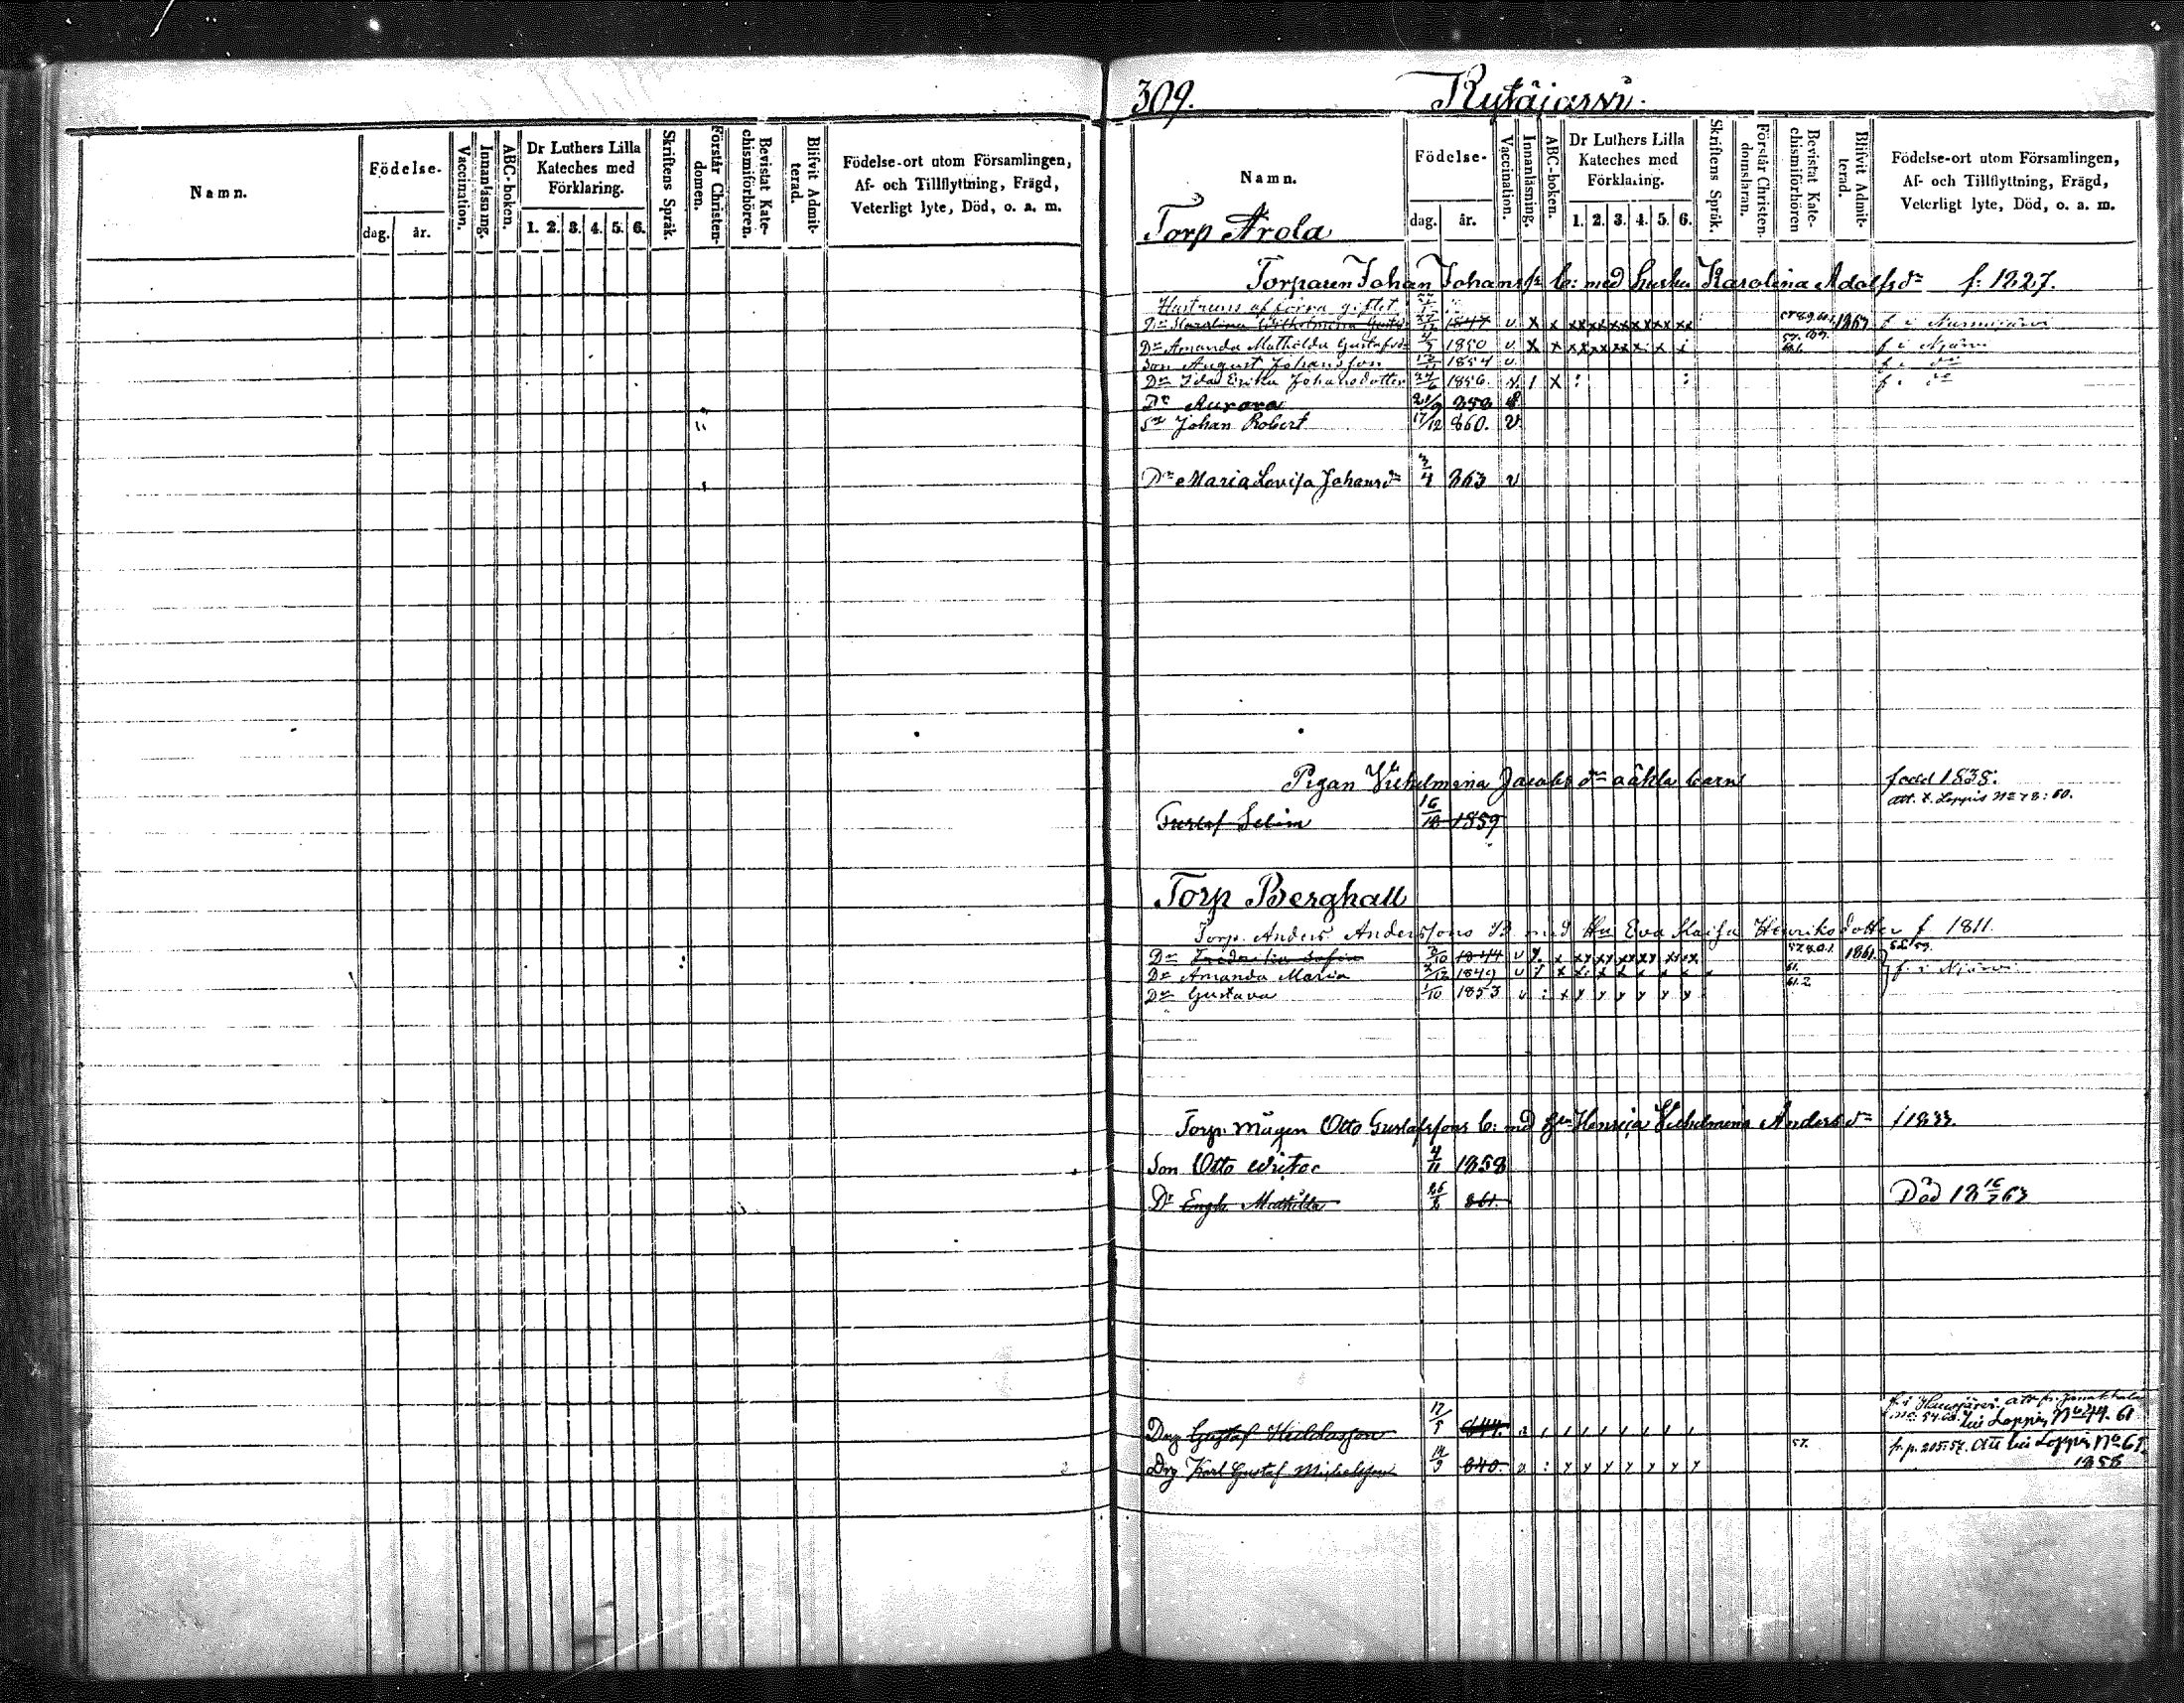 Namn.
Födelse-
dag.
år.
Vaccination.
Innanläsning.
ABC-boken.
Dr Luthers Lilla
Kateches med
Förklaring.
1. 2. 3. 4. 5. 6.
Skriftens Språk.
Förstår Christen-
domen.
Bevistat Kate-
chismiförhören.
Blifvit Admit-
terad.
Födelse-ort utom Församlingen,
Af- och Tillflyttning, Frägd,
Veterligt lyte, Död, o. a. m.
309. Kytäjärvi.
Namn.
Födelse-
dag.
år.
Vaccination.
Innanläsning.
ABC-boken.
Dr Luthers Lilla
Kateches med
Förklaring.
1. 2. 3. 4. 5. 6.
Skriftens Språk.
Förstår Christen-
domsläran.
Bevistat Kate-
chismiförhören
Blifvit Admit-
terad.
Födelse-ort utom Församlingen,
Af- och Tillflyttning, Frägd,
Veterligt lyte, Död, o. a. m.
Torp Arola
Torparen Johan Johans b: med hustru Karolina Adolfsdr f: 1827.
Hustruns af förra giftet
Dr Karolina Wilhelmina Gustafs 1847 v x x xx xx xx xx xx xx 1863 f i Nurmijärvi
Dr Amanda Mathilda Gustafsdr 1850 v x x f i Njärvi
Son August Johansson 1854 v. f i do
Dr Ida Erika Johansdotter 24/6 1856. x : f i do
Dr Aurora 21/9 858
Sn Johan Robert 17/12 860. v
Dr Maria Lovisa Johansdr 3/4 863 v
Pigan Vilhelmina Jacobsdr oäkta barn född 1838.
att. t. Loppis No 78: 60.
Gustaf Selim 16/12 1859
Torp Berghall
Torp. Anders Anderssons B med Hu Eva Kaisa Henriksdotter f 1811.
Dr Fredrika Sofia 3/10 1844 v 1861.
Dr Amanda Maria 3/12 1849 v f. i Njärvi
Dr Gustava 1/10 1853 v : x y y y y y y 61.2
Torp. mågen Otto Gustafssons b: med Hu Henrica Vilhelmina Andersdr f 1833.
Son Otto Victor 4/11 1858
Dr Engla Mathilda 861. Död 18 16/2 63
Drg Gustaf 17/5 844. f. i Hausjärvi. att fr. Janakkala
till Loppis No 44. 61
Drg Karl Gustaf Michelsson 840. v : y y y y y y y 57. fr. p. 205. 57. att till Loppis No 65.
1858